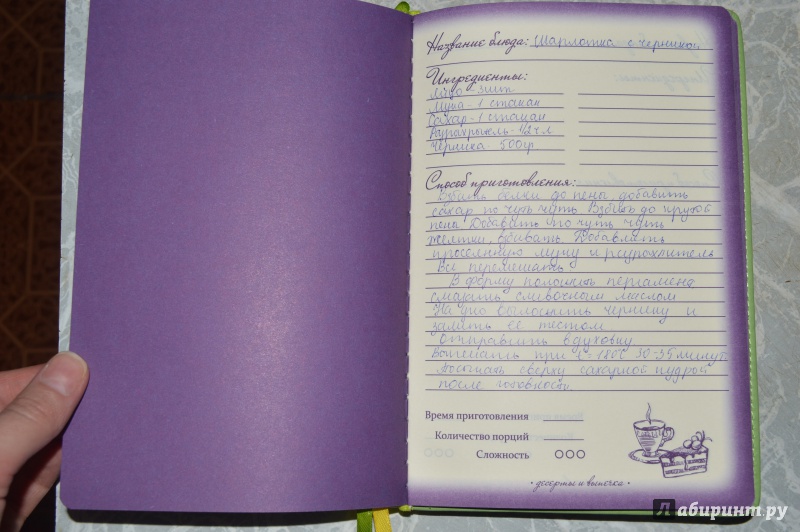 Название блюда: Шарлотка с черникой
Ингредиенты:
Яйцо 3шт
Мука - 1 стакан
Сахар - 1 стакан
Разрыхлитель - 1/2 ч.л
Черника 500гр
Способ приготовления:
Взбить белки до пены, добавить
сахар по чуть чуть. Взбить до крутой
пены. Добавить по чуть чуть
желтки, взбивать. Добавлять
просеянную муку и разрыхлитель
Все перемешать
В форму положить пергамент
смазать сливочным маслом
На дно выложить чернику и
залить её тестом
Отправить в духовку
Выпекать при t - 180С 30-35 минут
Посыпать сверху сахарной пудрой
после готовности.
Время приготовления
Количество порций
Сложность
• десерты и выпечка •
Лабиринт.ру